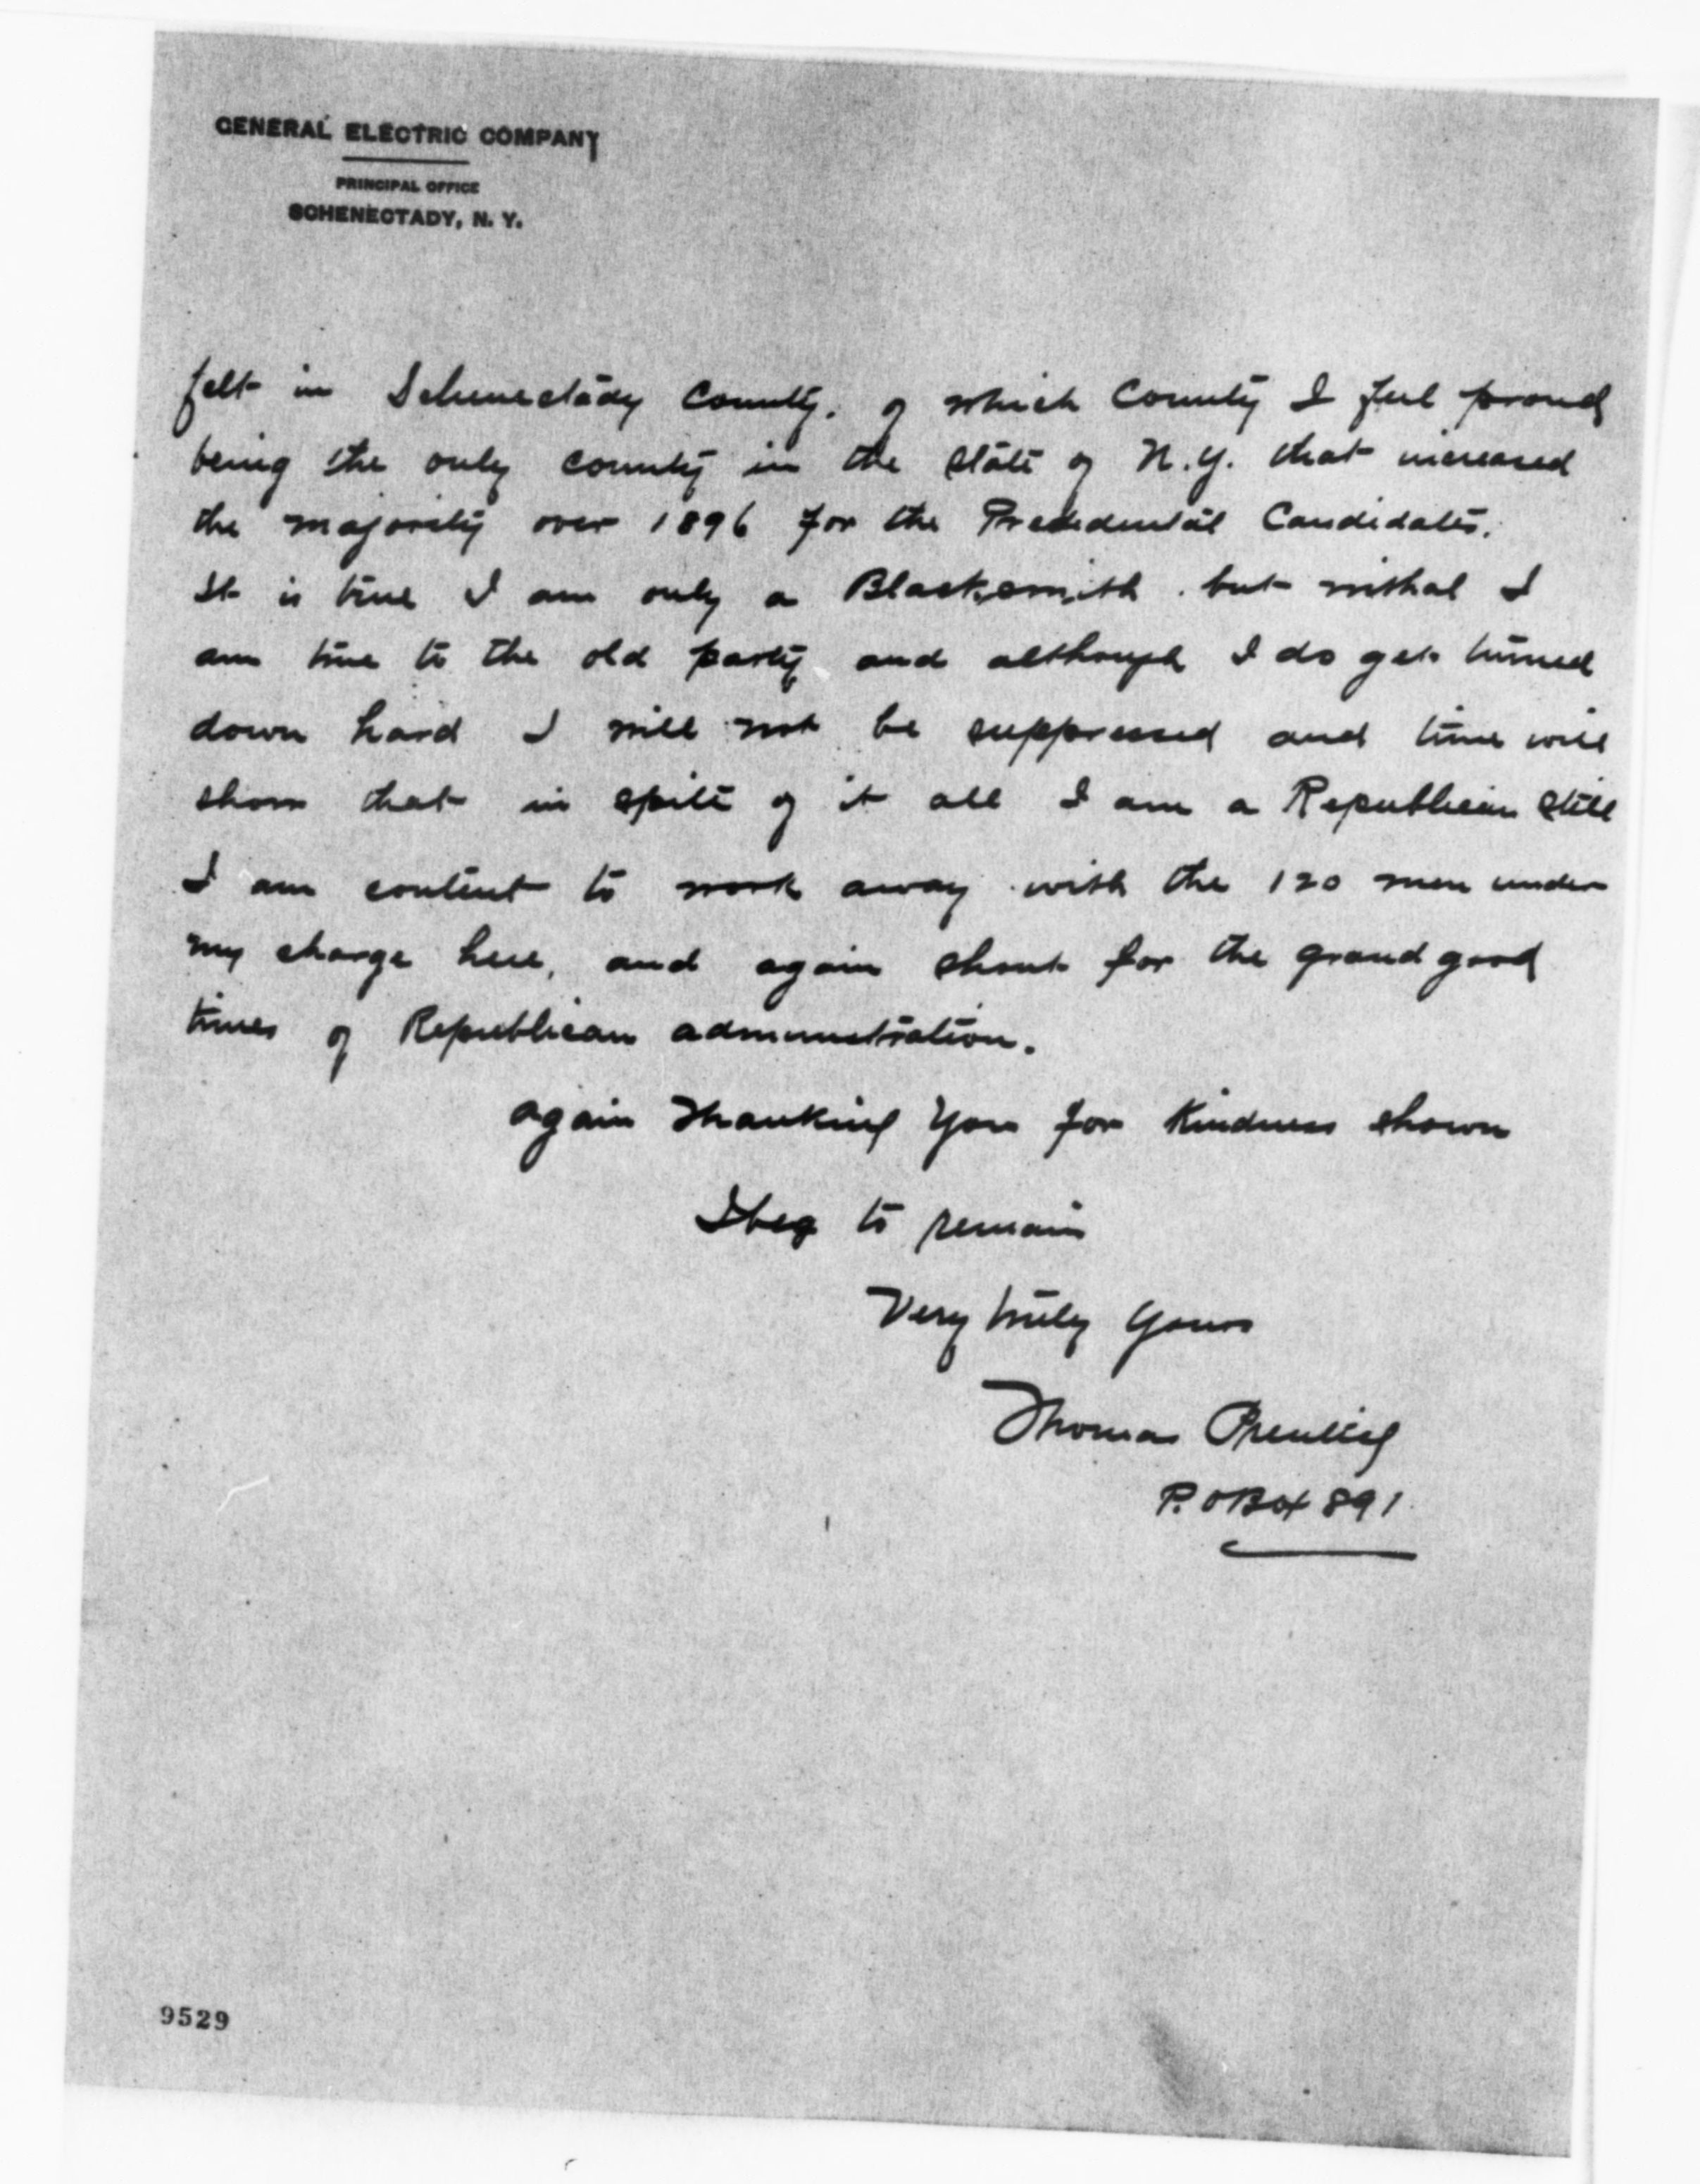 GENERAL ELECTRIC COMPANY
PRINCIPAL OFFICE
SCHENECTADY, N. Y.
felt in Schenectady County. of which County I feel proud
being the only county in the state of N.Y. that increased
the majority over 1896 for the Presedental Candidates.
It is true I am only a Blacksmith. but withal I
am true to the old party and although I do get turned
down hard I will not be suppressed and time will
show that in spite of it all I am a Republican still
I am content to work away with the 120 men under
my charge here, and again shout for the grand good
times of Republican administration.
again Thanking You for Kindness shown
I beg to remain
Very truly Yours
Thomas
P.O Box 891
9529